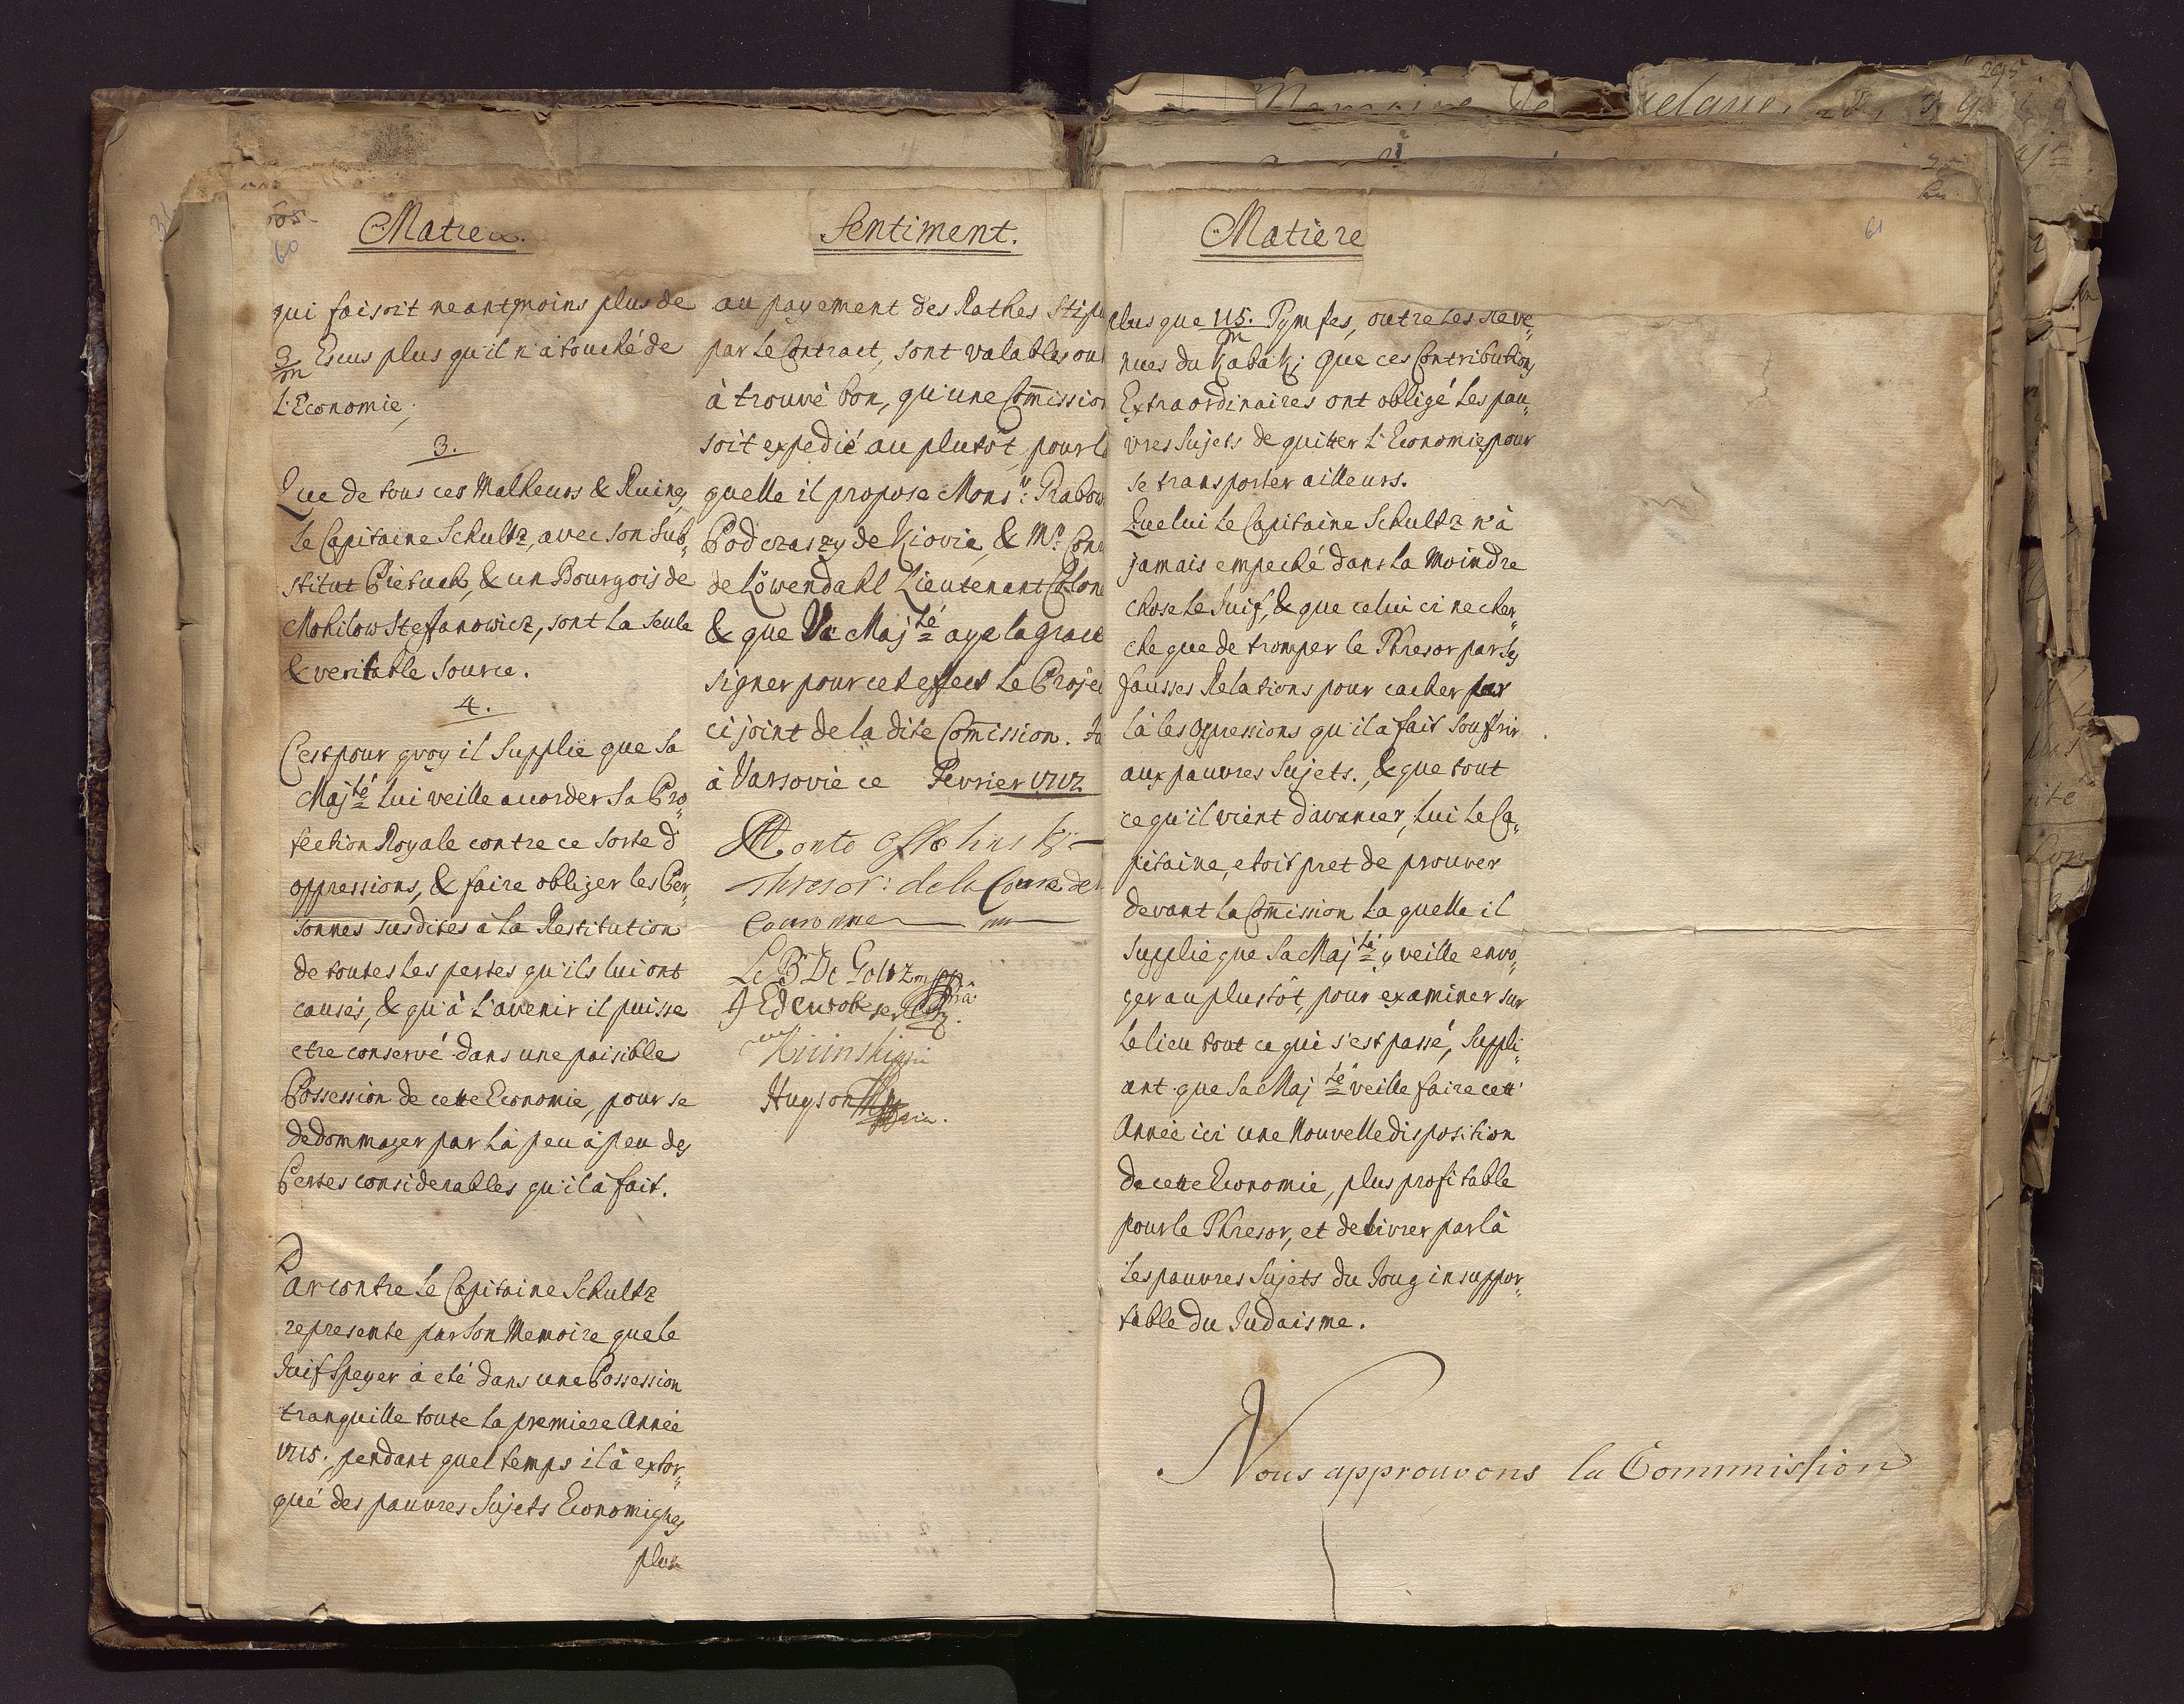 Matiere.
qui faisoit neantmoins plus de
2/m Escus plus qu'il n'à touché de
L'Economie;
3.
Que de tous ces Malheurs & Ruines
Le Capitaine Schultz, avec son Sub„
stitut Pietuch, & un Bourgois de
Mohilow Steffanowicz, sont La seule
& veritable source.
4.
C'est pour quoy il Supplie que Sa
Majté Lui veille accorder Sa Pro„
tection Royale contre ce sorte d'
oppressions, & faire obliger les Per„
sonnes susdites à La Restitution
de toutes Les pertes qu'ils lui ont
causés, & qu'à L'avenir il puisse
etre conservé dans une paisible
Possession de cette Economie, pour se
dedommager par Là peu à peu des
Pertes considerables qu'il à fait.
Par contre Le Capitaine Schultz
represente par Son Memoire que le
Juif Speyer à eté dans une Possession
tranquille toute La premiere Année
1715. pendant quel temps il à extor„
qué des pauvres Sujets Economiques
plus
Sentiment.
au payement des Rathes Stipu
par Le Contract, sont valables ou
à trouvé bon, qu'une Comission
soit expedié au plutôt, pour la
quelle il propose Monsr:
Podczaszy de Kiovie, & Mr.
de Löwendahl Lieutenant Colone
& que Vre Majté aye la grace
signer pour cet effect Le Proje
ci joint de la dite Comission.
à Varsovie ce Fevrier 1717
Thresor: de la Cour de
Couronne mp
Le B De Goltz mp
Hugson
60
Matière
61
plus que 115/m Tymfes, outre Les Reve„
nues du Kabak; que ces Contributions
Extraordinaires ont obligé Les pau„
vres Sujets de quitter L'Economie pour
se transporter ailleurs.
Que lui Le Capitaine Schultz n'à
jamais empeché dans La Moindre
chose Le Juif, & que celui ci ne cher„
che que de tromper le Thresor par Ses
fausses Relations pour cacher par
là les oppressions qu'il à fait Souffrir
aux pauvres Sujets., & que tout
ce qu'il vient d'avancer, Lui Le Ca„
pitaine, etoit pret de prouver
devant La Comission La quelle il
supplie que Sa Majté y veille envo„
yer au plustôt, pour examiner sur
Le lieu tout ce qui s'est passé, Suppli„
ant que Sa Majté veille faire cett'
Année ici une Nouvelle disposition
De cette Economie, plus profitable
pour le Thresor, et delivrer par là
Les pauvres Sujets du Joug insuppor„
table du Judaisme.
Nous approuvons la Commission